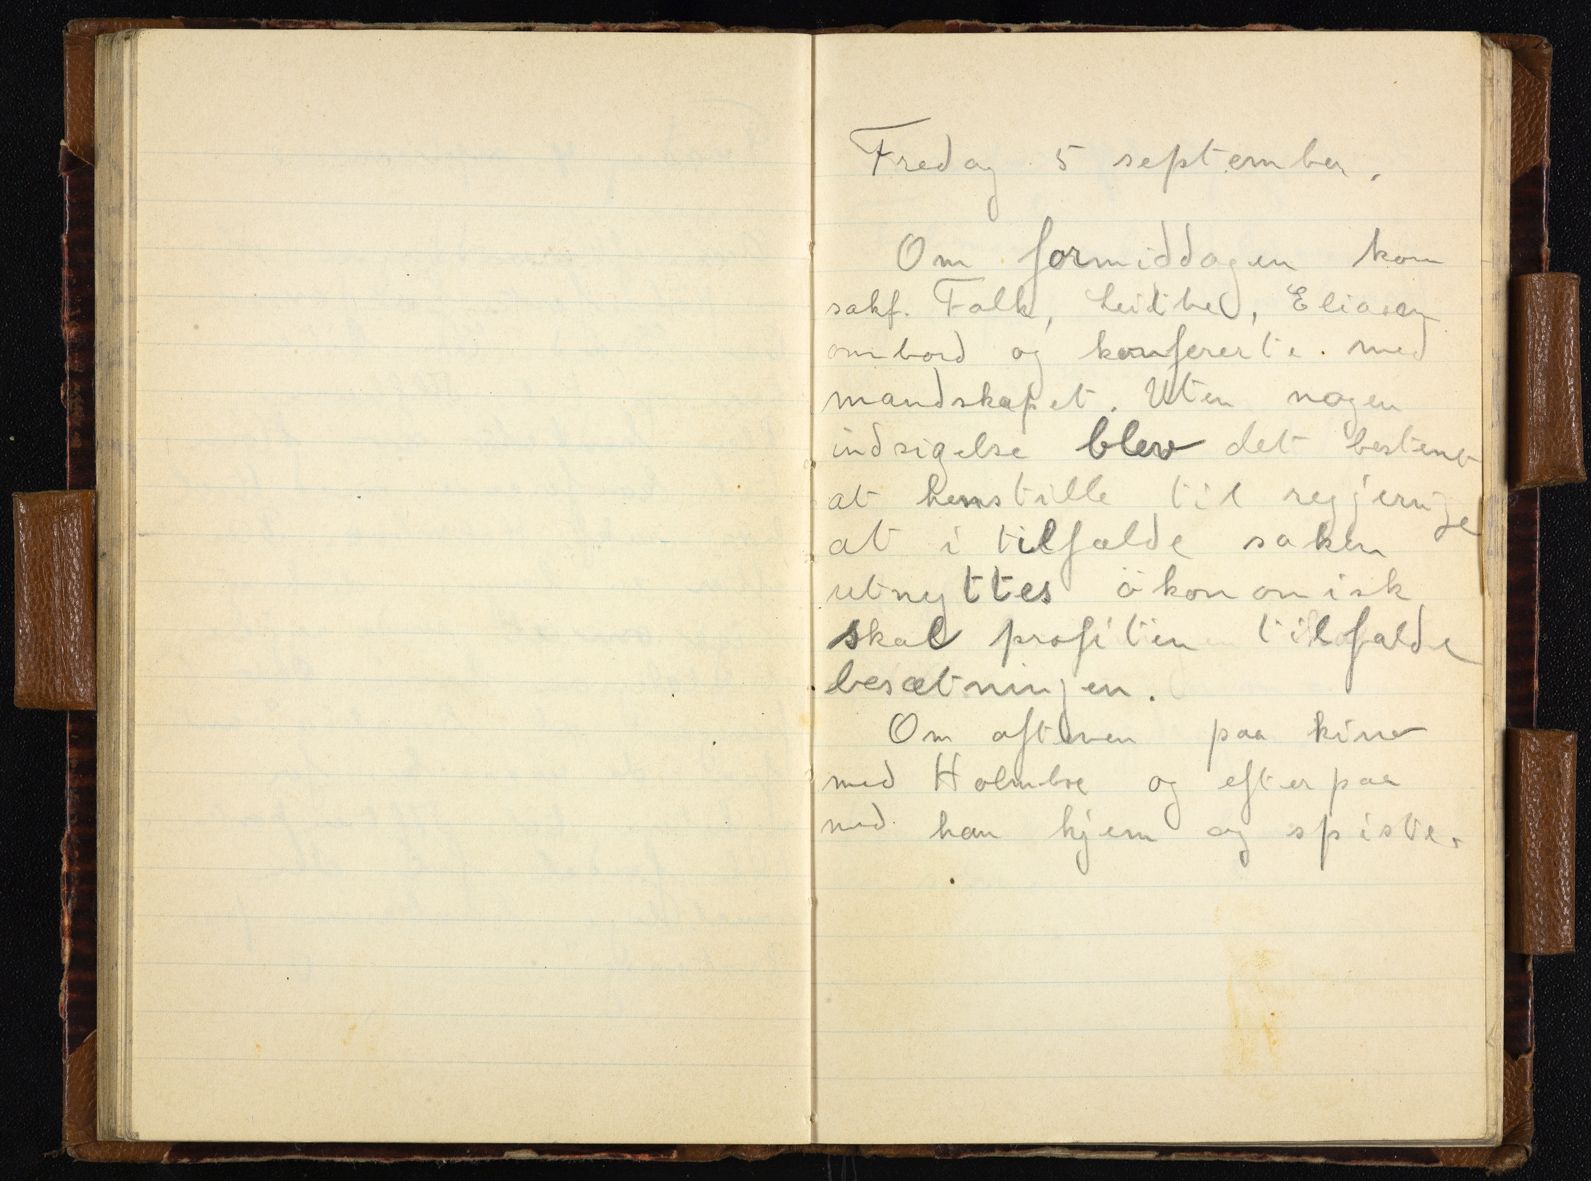 Fredag 5 september.
Om formiddagen kom
sakf. Falk, Leidbe, Eliasen
ombord og konfererte med
mandskapet. Uten nogen
indsigelse blev det bestemt
at henstille til regjeringe
at i tilfælde saken
utnyttes økonomisk
skal profiten tilfalde
besætningen.
Om aftenen paa kino
med Holmboe og efterpaa
med han hjem og spiste.